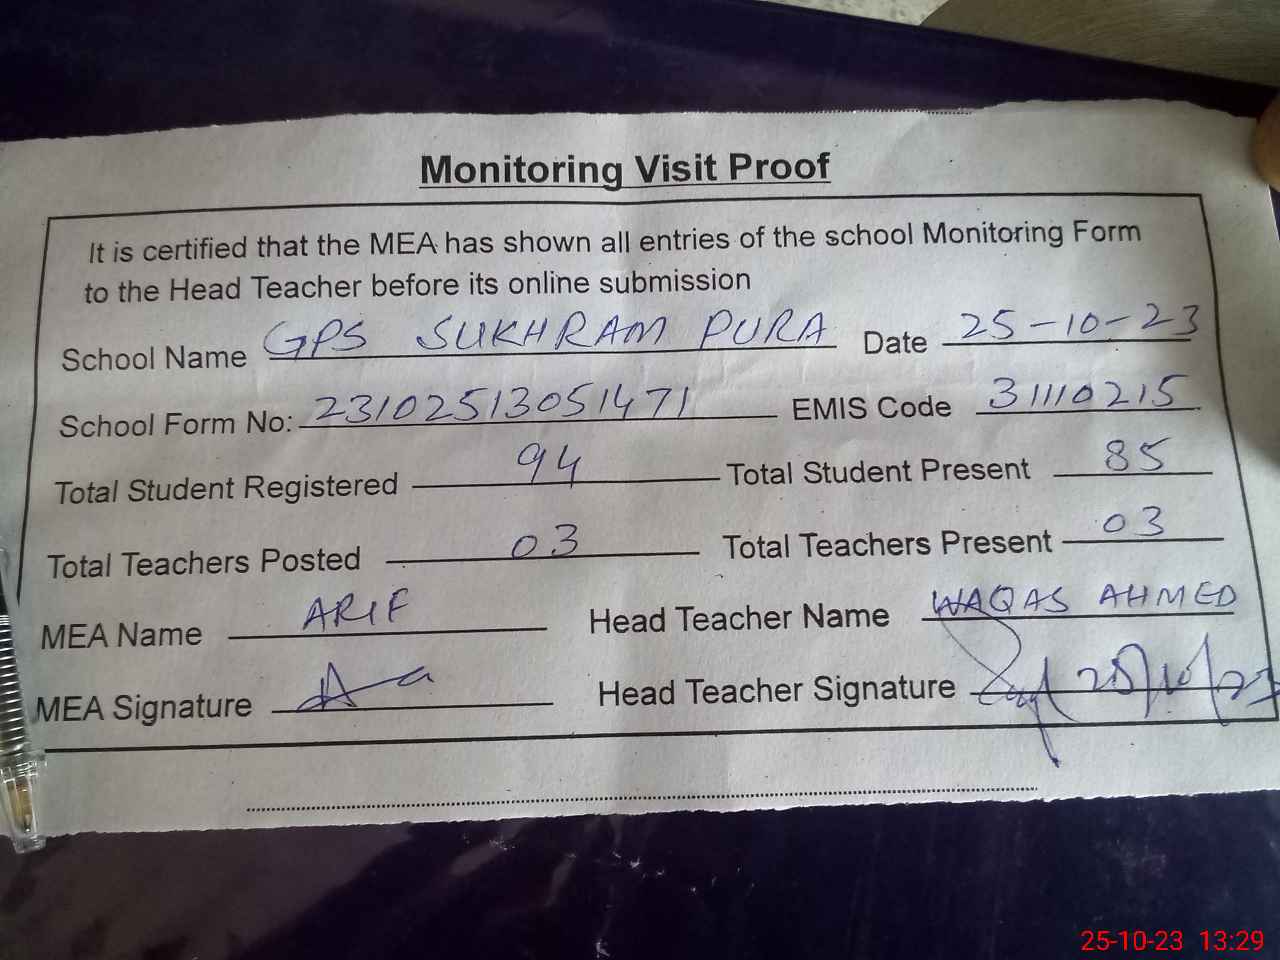 Monitoring Visit Proof
It is certified that the MEA has shown all entries of the school Monitoring Form
to the Head Teacher before its online submission
School Name GPS SUKHRAM PURA Date 25-10-23
School Form No: 23102513051471 EMIS Code 31110215
Total Student Registered 94 Total Student Present 85
Total Teachers Posted 03 Total Teachers Present 03
MEA Name ARIF Head Teacher Name WAQAS AHMED
MEA Signature Head Teacher Signature 25/10/23
25-10-23 13:29